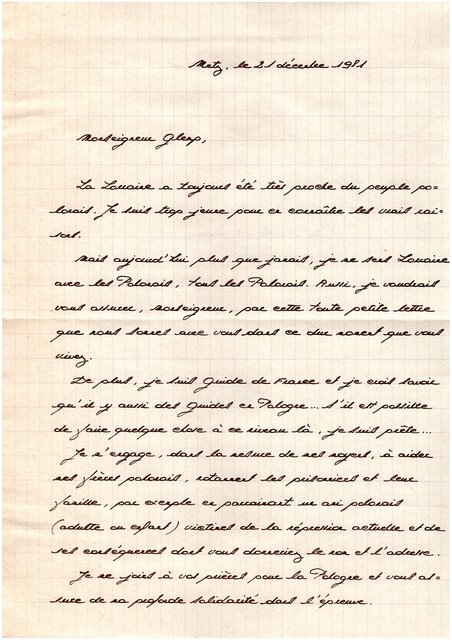 Metz, le 21 décembre 1981
Monseigneur Glemp,
La Lorraine a toujours été très proche du peuple po-
lonais. Je suis trop jeune pour en connaître les vrais rai-
sons.
Mais aujourd'hui plus que jamais, je me sens Lorraine
avec les Polonais, tous les Polonais. Aussi, je voudrais
vous assurer, Monseigneur, par cette toute petite lettre
que nous sommes avec vous dans ce dur moment que vous
vivez.
De plus, je suis Guide de France et je crois savoir
qu'il y aussi des Guides en Pologne... s'il est possible
de faire quelque chose à ce niveau là, je suis prête...
Je m'engage, dans la mesure de mes moyens, à aider
mes frères polonais, notamment les prisonniers et leur
famille, par exemple en parrainant un ami polonais
(adulte ou enfant) victimes de la répression actuelle et de
ses conséquences dont vous donneriez le nom et l'adresse.
Je me joins à vos prières pour la Pologne et vous as-
sure de ma profonde solidarité dans l'épreuve.